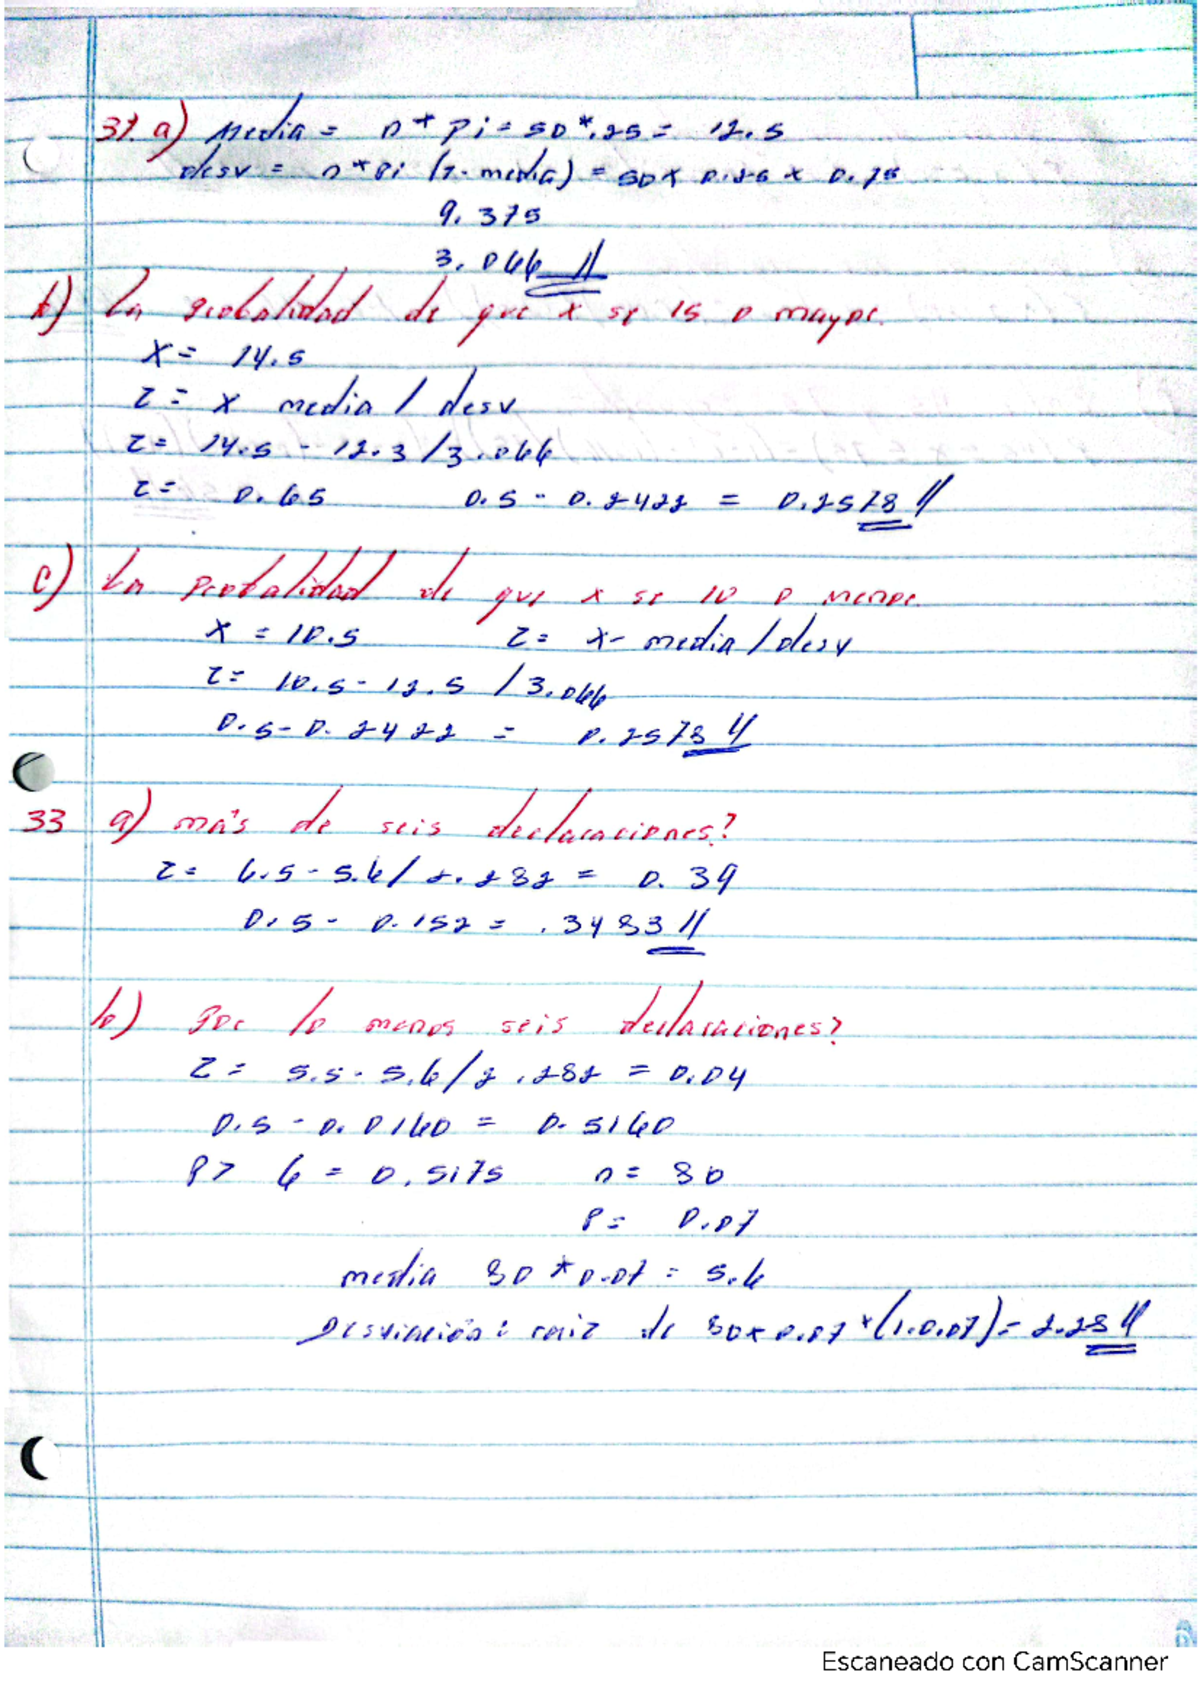 31. a) Media = n * pi = 50 * .25 = 12.5
desv = n * pi (1 - media) = 50 x 0.25 x 0.75
9.375
3.066
b) La probalidad de que x se 15 o mayor.
x = 14.5
z = x media / desv
z = 14.5 - 12.3 / 3.066
z = 0.65 0.5 - 0.2422 = 0.2578
c) La probalidad de que x se 10 o menor.
x = 10.5 z = x - media / desv
z = 10.5 - 12.5 / 3.066
0.5 - 0.2422 = 0.2578
33 a) más de seis declaraciones?
z = 6.5 - 5.6 / 2.282 = 0.39
0.5 - 0.152 = .3483
b) Por lo menos seis declaraciones?
z = 5.5 - 5.6 / 2.282 = 0.04
0.5 - 0.0160 = 0.5160
P > 6 = 0.5175 n = 80
P = 0.07
media 80 * 0.07 = 5.6
Desviación: raiz de 80 x 0.07 * (1-0.07) = 2.28
Escaneado con CamScanner